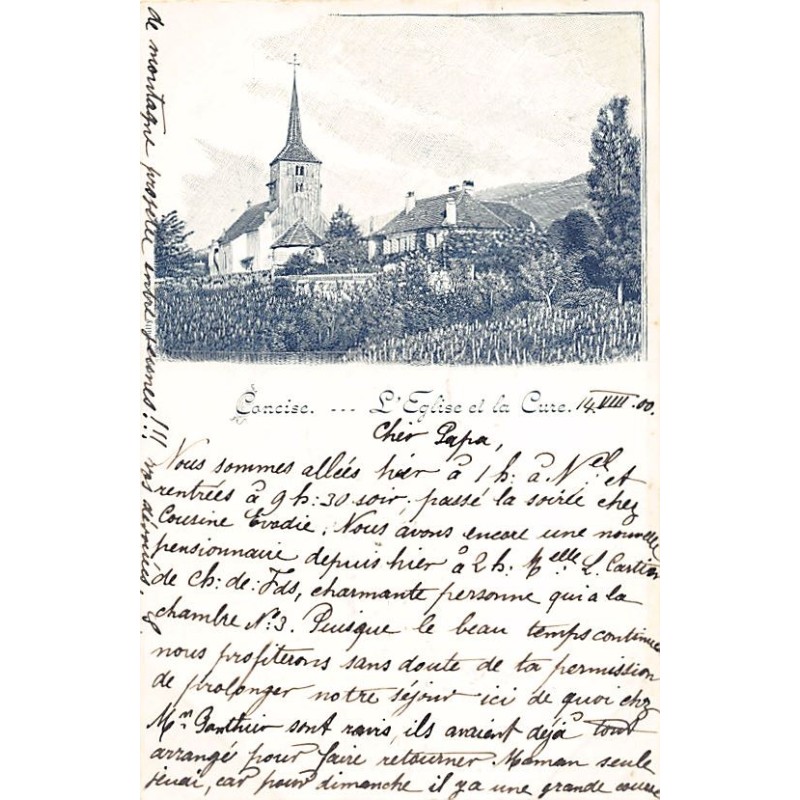 Concise. --- L'Eglise et la Cure. 14.VIII.00.
Cher Papa,
Nous sommes allées hier à 1h. à N.el et
rentrées à 9h:30 soir; passé la soirée chez
Cousine Evodie. Nous avons encore une nouvelle
pensionnaire depuis hier à 2h. Melle L. Cartier
de Ch: de: Fds, charmante personne qui a la
chambre No. 3. Puisque le beau temps continue
nous profiterons sans doute de ta permission
de prolonger notre séjour ici de quoi chez
Mr Ganthier sont ravis, ils avaient déjà tout
arrangé pour faire retourner Maman seule
jeudi, car pour dimanche il y a une grande course
de montagne projetée entre femmes!!!